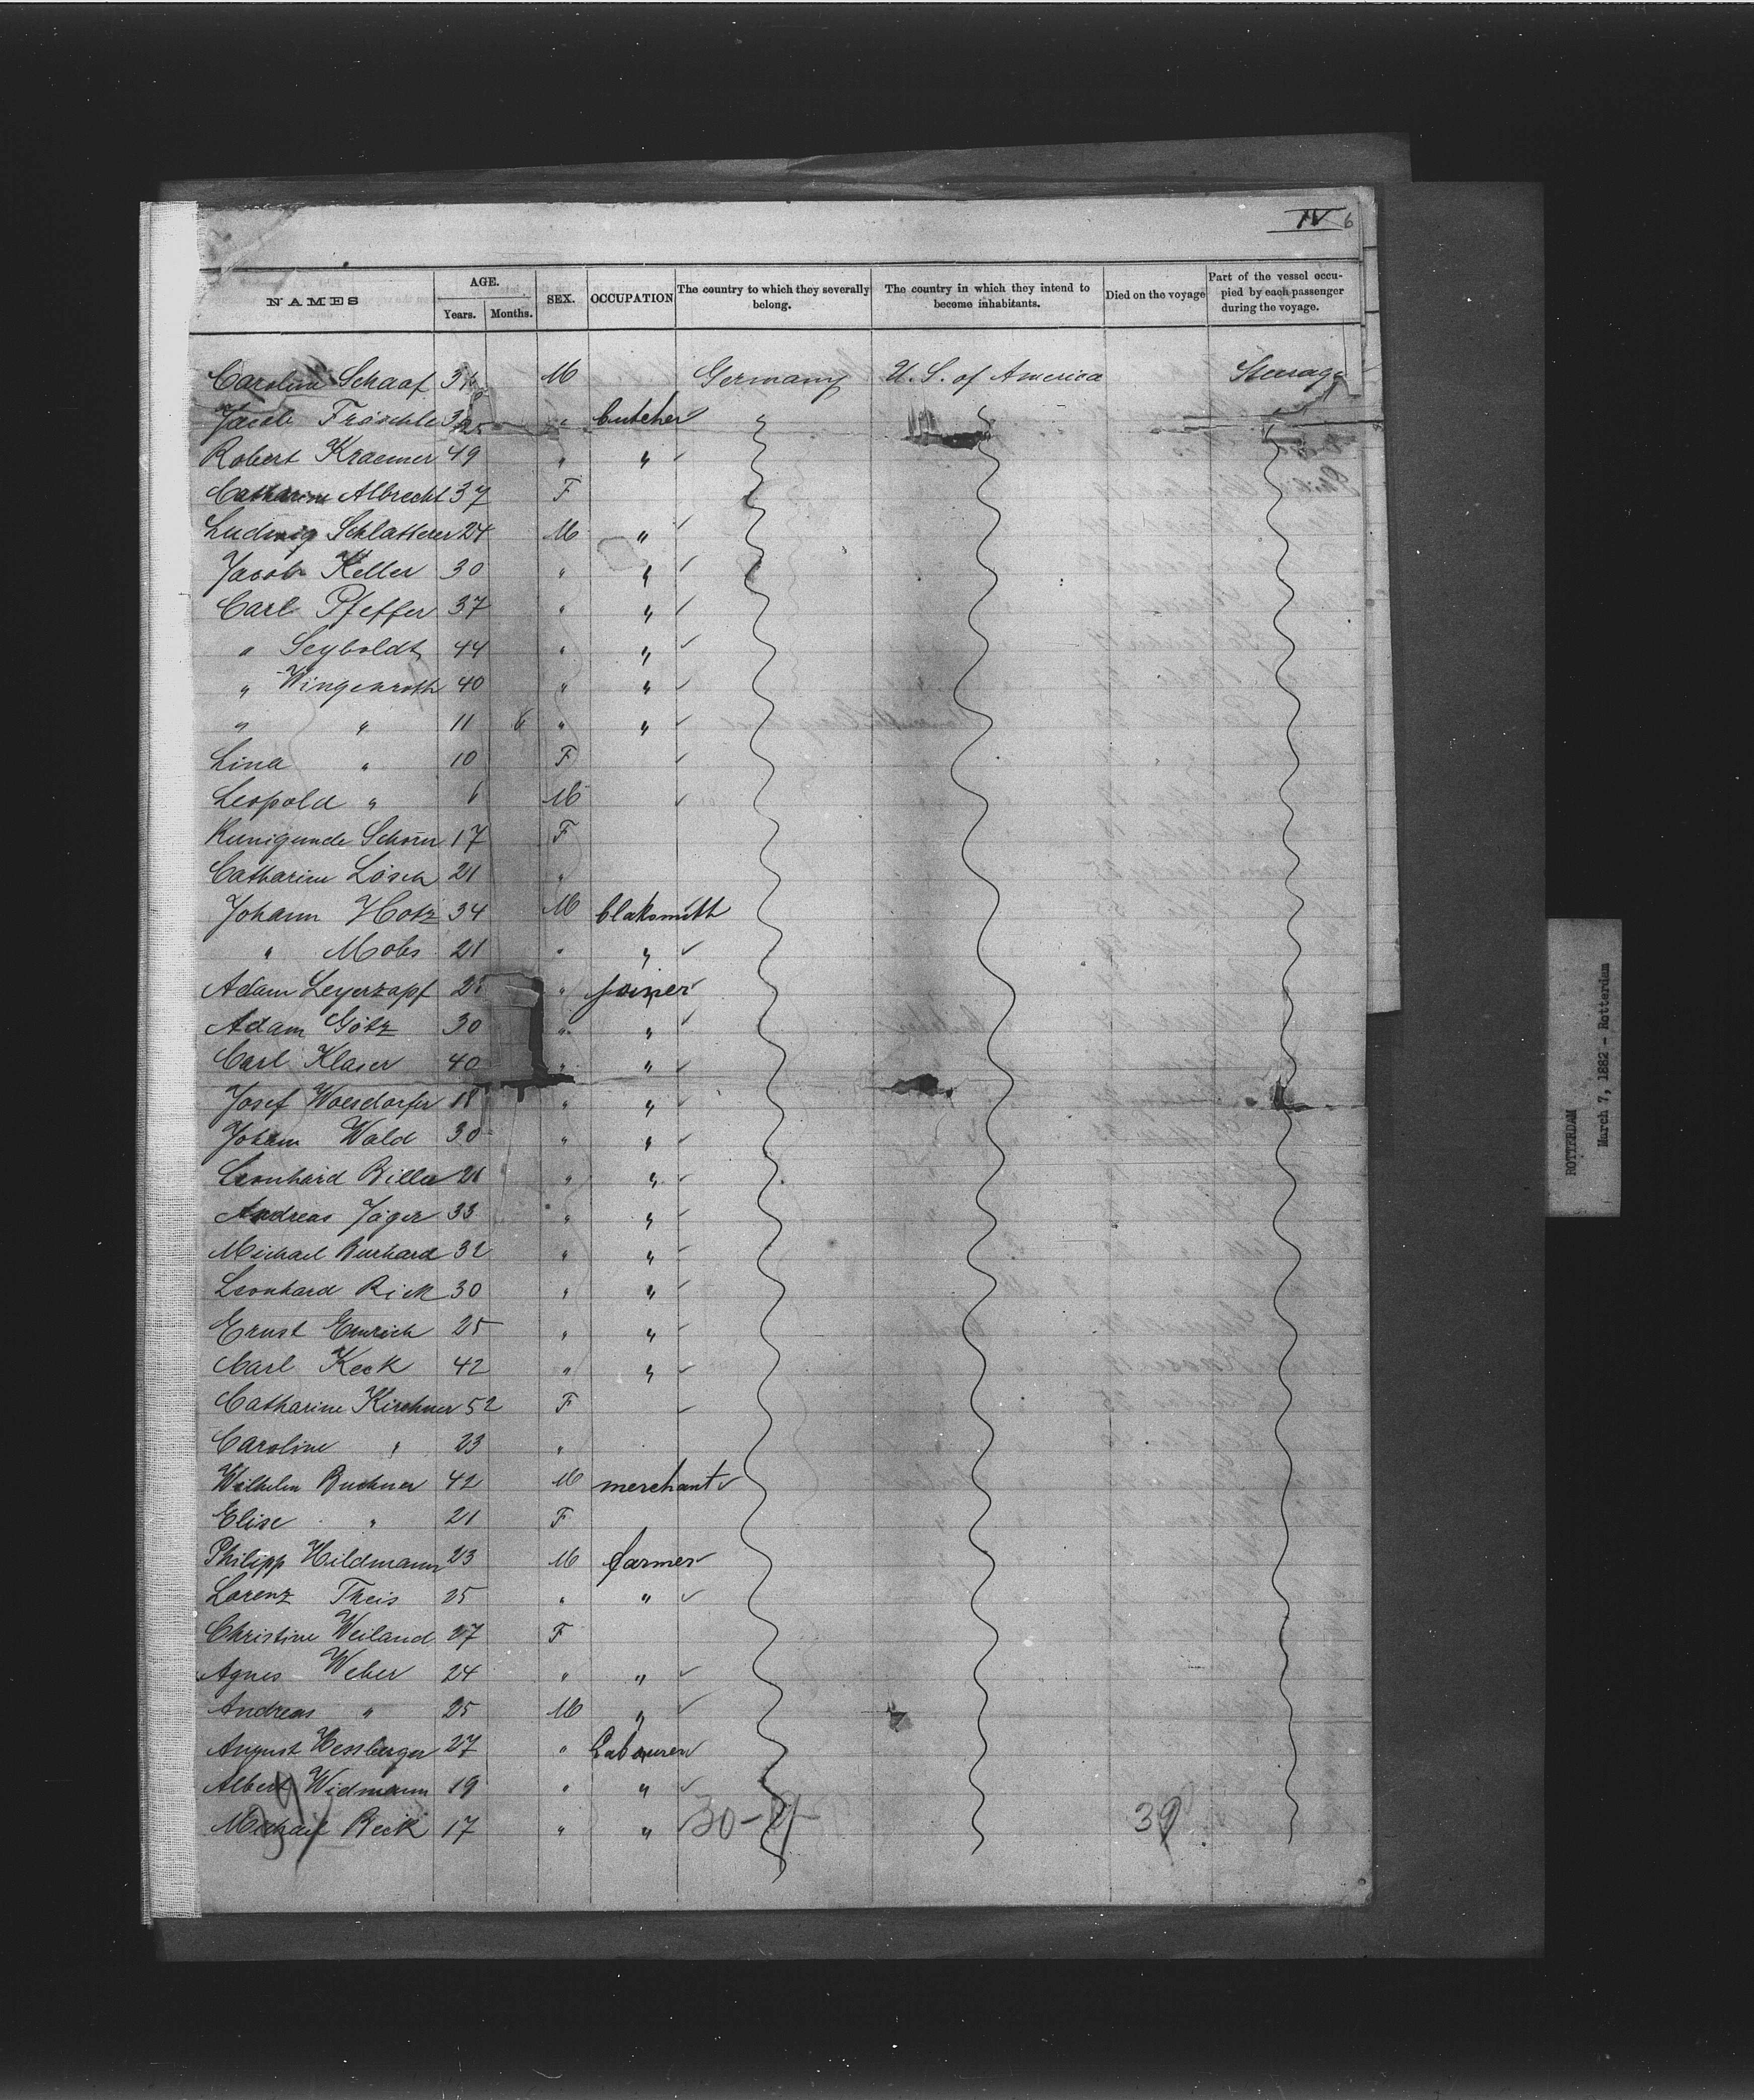 IV 6
NAMES AGE. Years. Months. SEX. OCCUPATION The country to which they severally belong. The country in which they intend to become inhabitants. Died on the voyage Part of the vessel occupied by each passenger during the voyage.
Caroline Schaaf M Germany U. S. of America Steerage
Jacob Fröschle " butcher
Robert Kraemer 49 " "
Catharine Albrecht 37 F
Ludwig Schlatterer 24 M "
Jacob Keller 30 " "
Carl Pfeffer 37 " "
" Seyboldt 44 " "
" Wingenroth 40 " "
" " 11 6 " "
Lina " 10 F
Leopold " 6 M
Kunigunde Schorn 17 F
Catharine Lösch 21 "
Johann Hotz 34 M blaksmith
" Mobs 21 " "
Adam Leyerzapf " joiner
Adam Götz 30 " "
Carl Klaser 40 " "
Josef Woesdorfer 18 " "
Johann Wald 30 " "
Leonhard Biller 21 " "
Andreas Jäger 33 " "
Michael Burkard 32 " "
Leonhard Rick 30 " "
Ernst Emrich 25 " "
Carl Keck 42 " "
Catharine Kirchner 52 F
Caroline " 23 "
Wilhelm Buchner 42 M merchant
Elise " 21 F
Philipp Hildmann 23 M farmer
Lorenz Theis 25 " "
Christine Weiland 27 F
Agnes Weber 24 " "
Andreas " 25 M "
August Hessberger 27 " Labourer
Albert Widmann 19 " "
Michael Beck 17 " " 30-9 39
ROTTERDAM
March 7, 1882 - Rotterdam